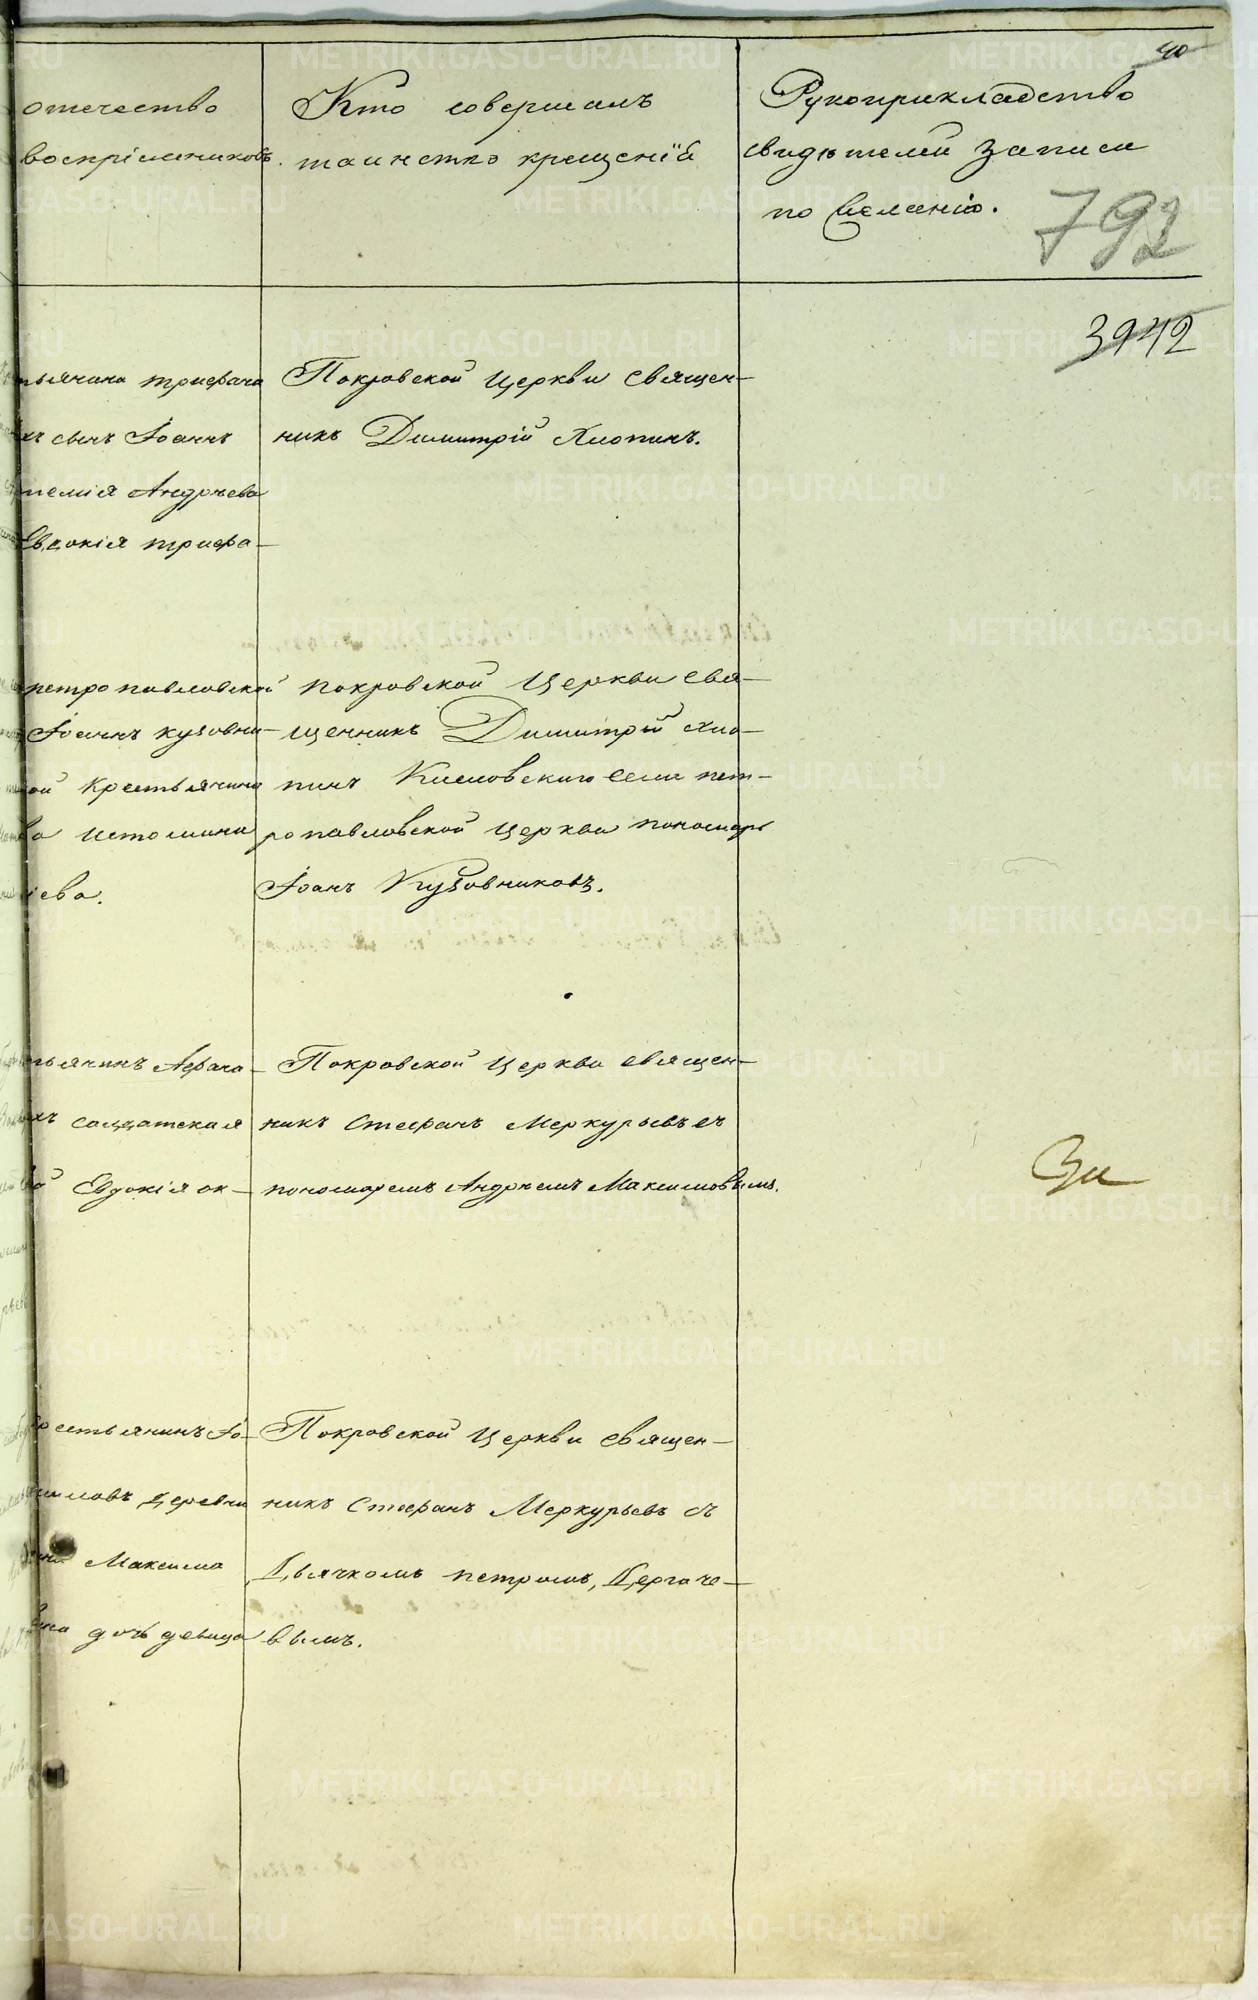 40
отечество
воспріемниковъ.
Кто совершалъ
таинство крещенія
Рукоприкладство
свидѣтелей записи
по желанію.
792
3942
трифана
сынъ Іоаннъ
Андреева
Евдокія трифа-
Покровской Церкви Священ-
никъ Димитрій Хлопинъ.
петропавловской
Іоаннъ кузовни-
крестьянина
истомина
иева.
покровской Церкви свя-
щенникъ Димитрій Хло-
пинъ Кисловскаго села пет-
ропавловской Церкви пономарь
Іоанъ Кузовниковъ.
солдатская
Евдокія
Покровской Церкви священ-
никъ Стефанъ Меркурьевъ съ
пономаремъ Андреемъ Максимовымъ.
За
крестьянинъ Іо-
деревни
Максима
дочь девица
Покровской Церкви священ-
никъ Стефанъ Меркурьевъ съ
Дьячкомъ петромъ, Дергаче-
вымъ.
METRIKI.GASO-URAL.RU